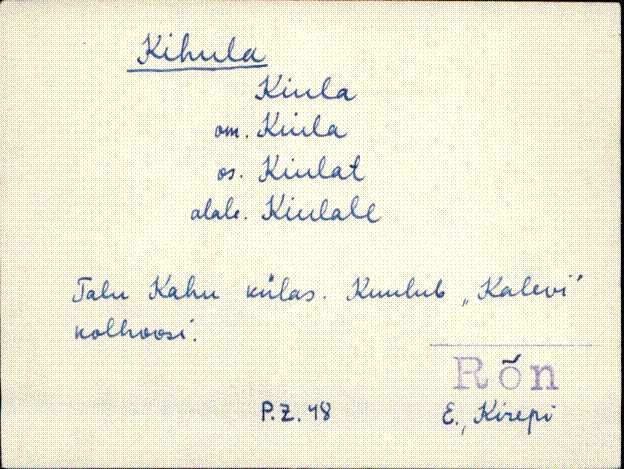 Kihula
Kiula
om. Kiula
os. Kiulat
alale. Kiulale
Talu Kahu külas. Kuulub „Kalevi"
kolhoosi.
Rõn
P.Z. 48 E., Kirepi